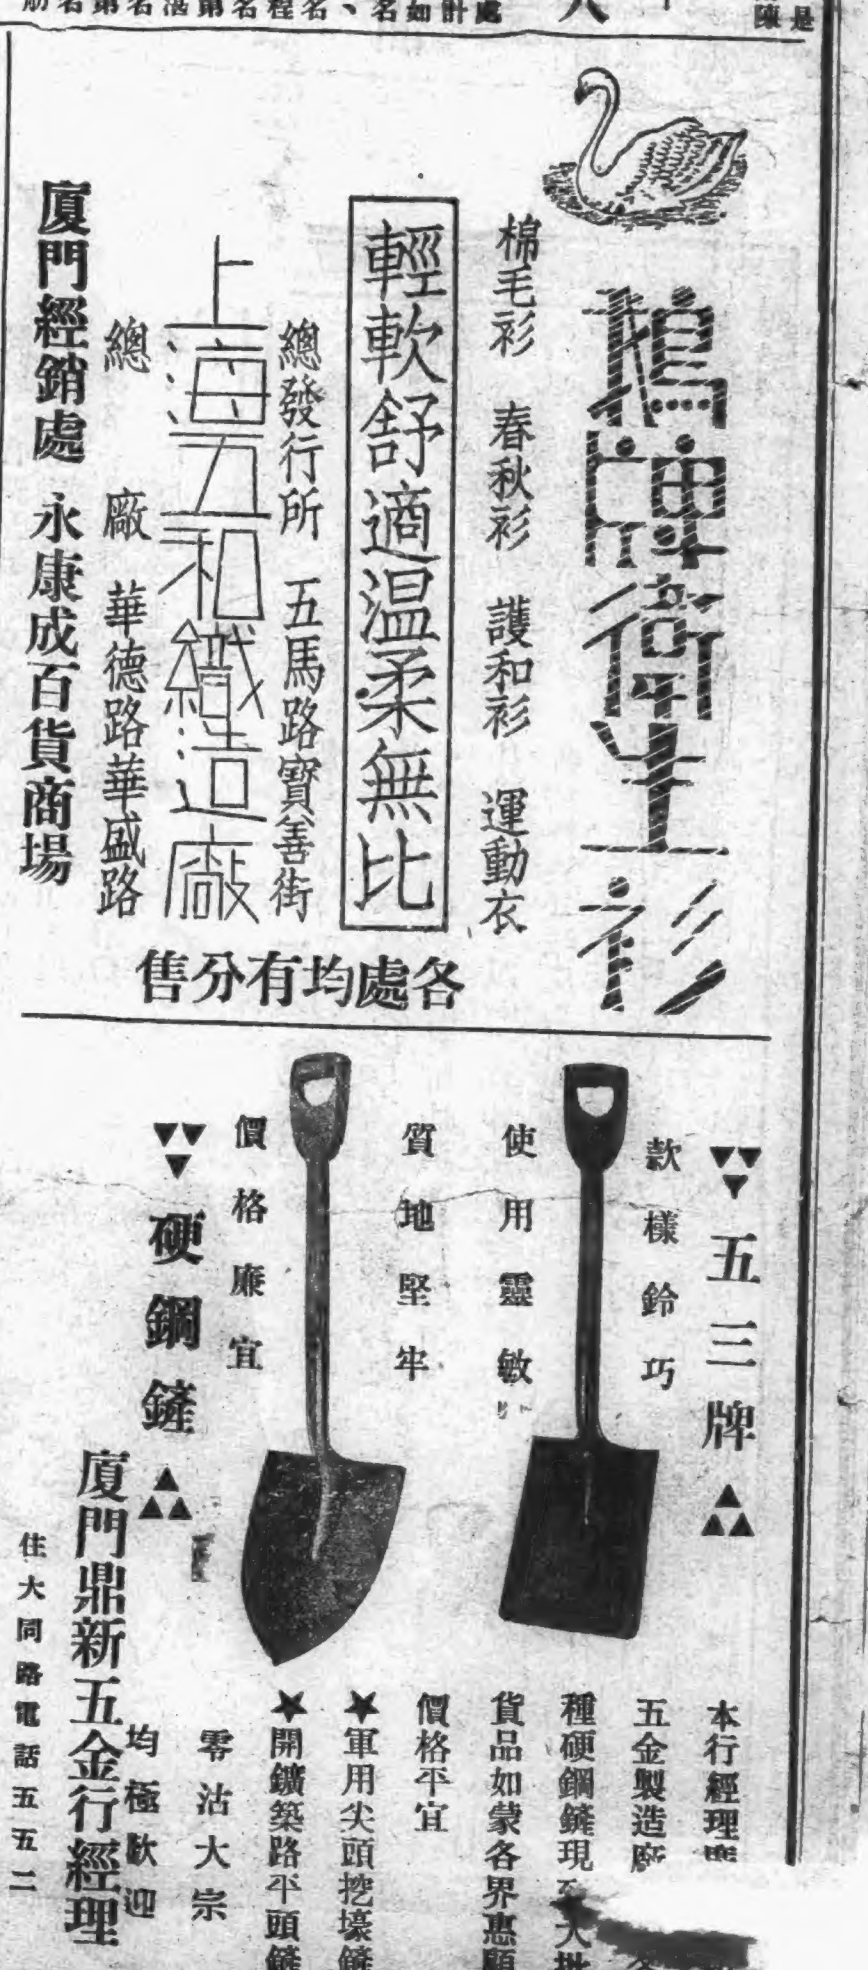 鵝牌衛生衫
棉毛衫 春秋衫 護和衫 運動衣
輕軟舒適温柔無比
總發行所 五馬路寶善街
上海五和織造廠
總廠 華德路華盛路
廈門經銷處 永康成百貨商場
各處均有分售
五三牌
款樣鈴巧
使用靈敏
質地堅牢
價格廉宜
硬鋼鏟
本行經理
五金製造廠
種硬鋼鏟現
貨品如蒙各界惠顧
價格平宜
★軍用尖頭挖壕鏟
★開鑛築路平頭鏟
零沽大宗
均極歡迎
廈門鼎新五金行經理
住大同路電話五五二